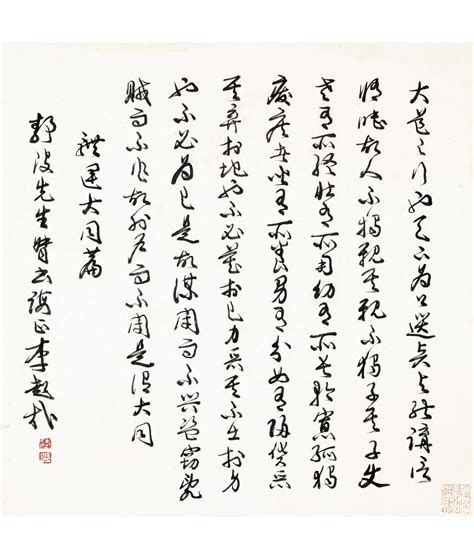 大道之行也天下為公選賢與能講信
修睦故人不獨親其親不獨子其子使
老有所終壯有所用幼有所長矜寡孤獨
廢疾者皆有所養男有分女有歸貨惡
其棄於地也不必藏於己力惡其不出於身
也不必為己是故謀閉而不興盜竊亂
賊而不作故外戶而不閉是謂大同
禮運大同篇
靜波先生書誨正李超哉